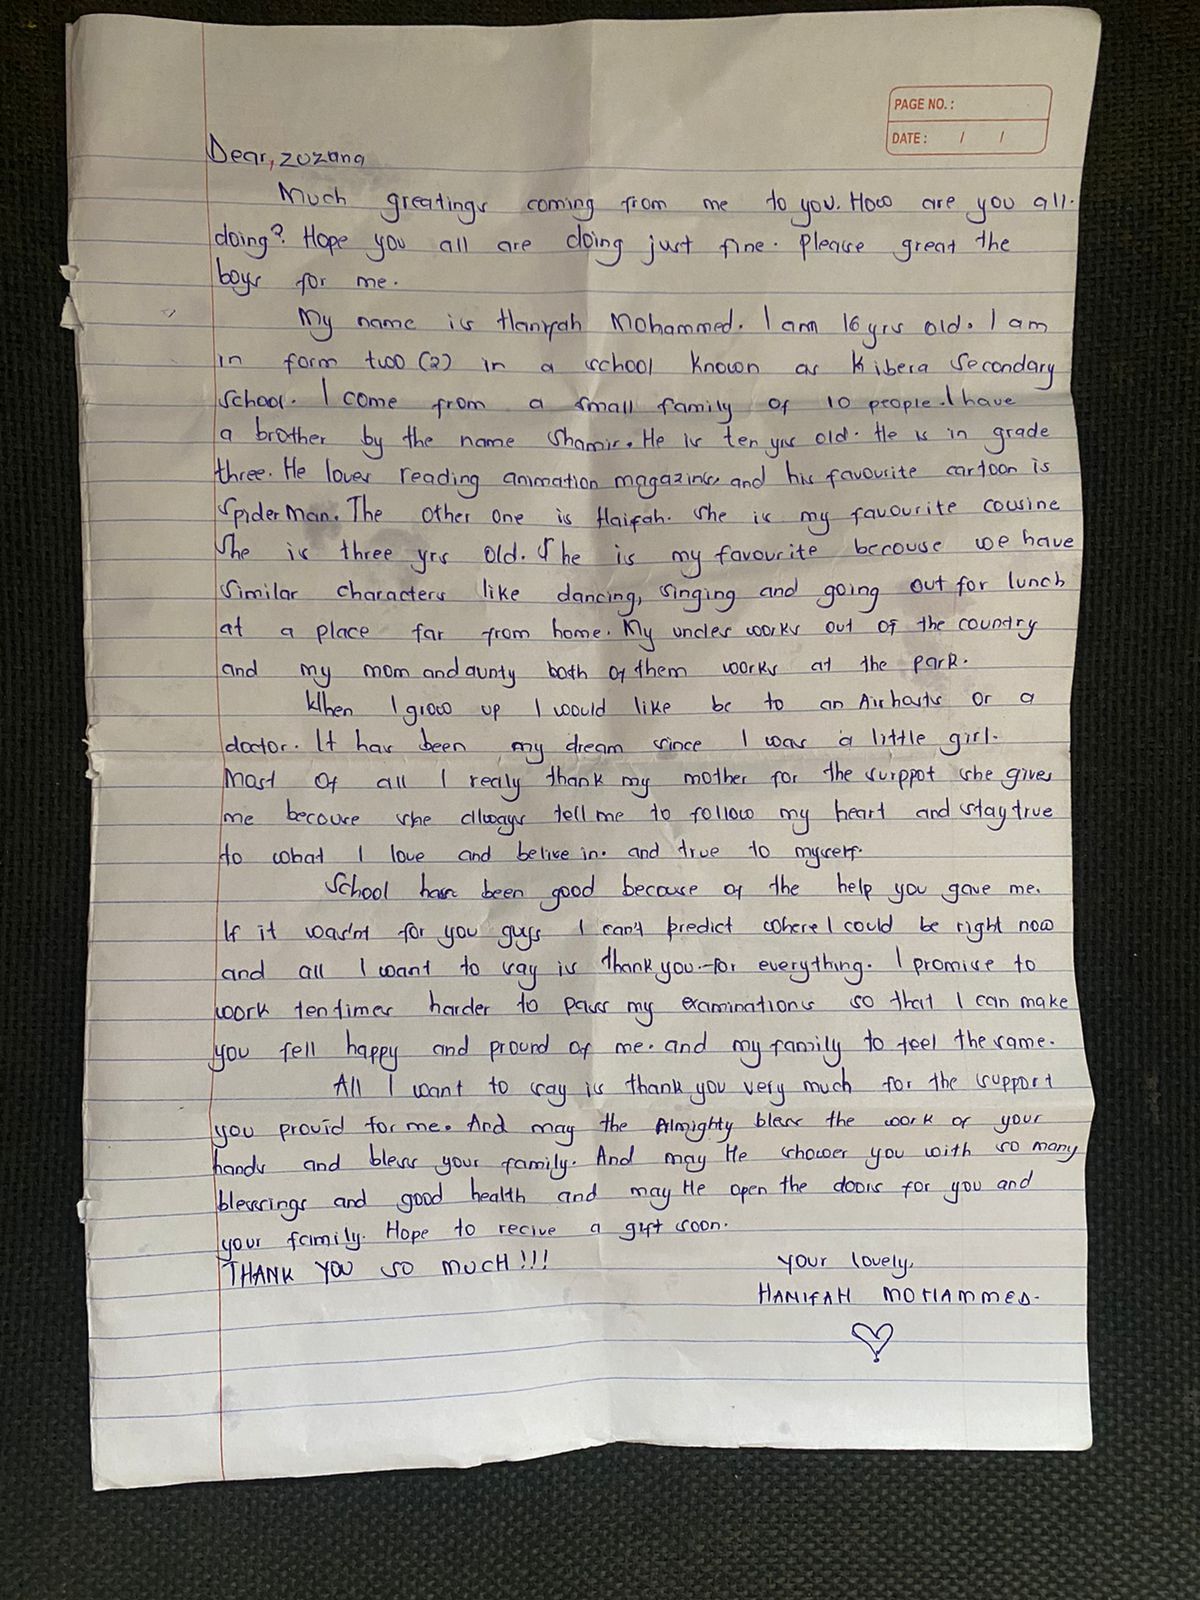 PAGE NO. :
DATE : / /
Dear, zuzana
Much greatings coming from me to you. How are you all.
doing? Hope you all are doing just fine. Please great the
boys for me.
My name is Hanifah Mohammed. I am 16 yrs old. I am
in form two (2) in a school known as Kibera Secondary
School. I come from a small family of 10 people. I have
a brother by the name Shamir. He is ten yrs old. He is in grade
three. He loves reading animation magazines and his favourite cartoon is
Spider Man. The other one is Haifah. She is my favourite cousine
She is three yrs old. She is my favourite becouse we have
similar characters like dancing, singing and going out for lunch
at a place far from home. My uncles works out of the country
and my mom and aunty both of them works at the park.
When I grow up I would like be to an Air hosts or a
doctor. It has been my dream since I was a little girl.
Most of all I realy thank my mother for the surppot she gives
me becouse she always tell me to follow my heart and stay true
to what I love and belive in. and true to myself.
School has been good because of the help you gave me.
If it wasn't for you guys I can't predict where I could be right now
and all I want to say is thank you for everything. I promise to
work ten times harder to pass my examinations so that I can make
you fell happy and pround of me. and my family to feel the same.
All I want to say is thank you very much for the support
you provid for me. And may the Almighty bless the work of your
hands and bless your family. And may He shower you with so many
blessings and good health and may He open the doors for you and
your family. Hope to recive a gift soon.
THANK YOU SO MUCH!!!
Your lovely,
HANIFAH MOHAMMED.